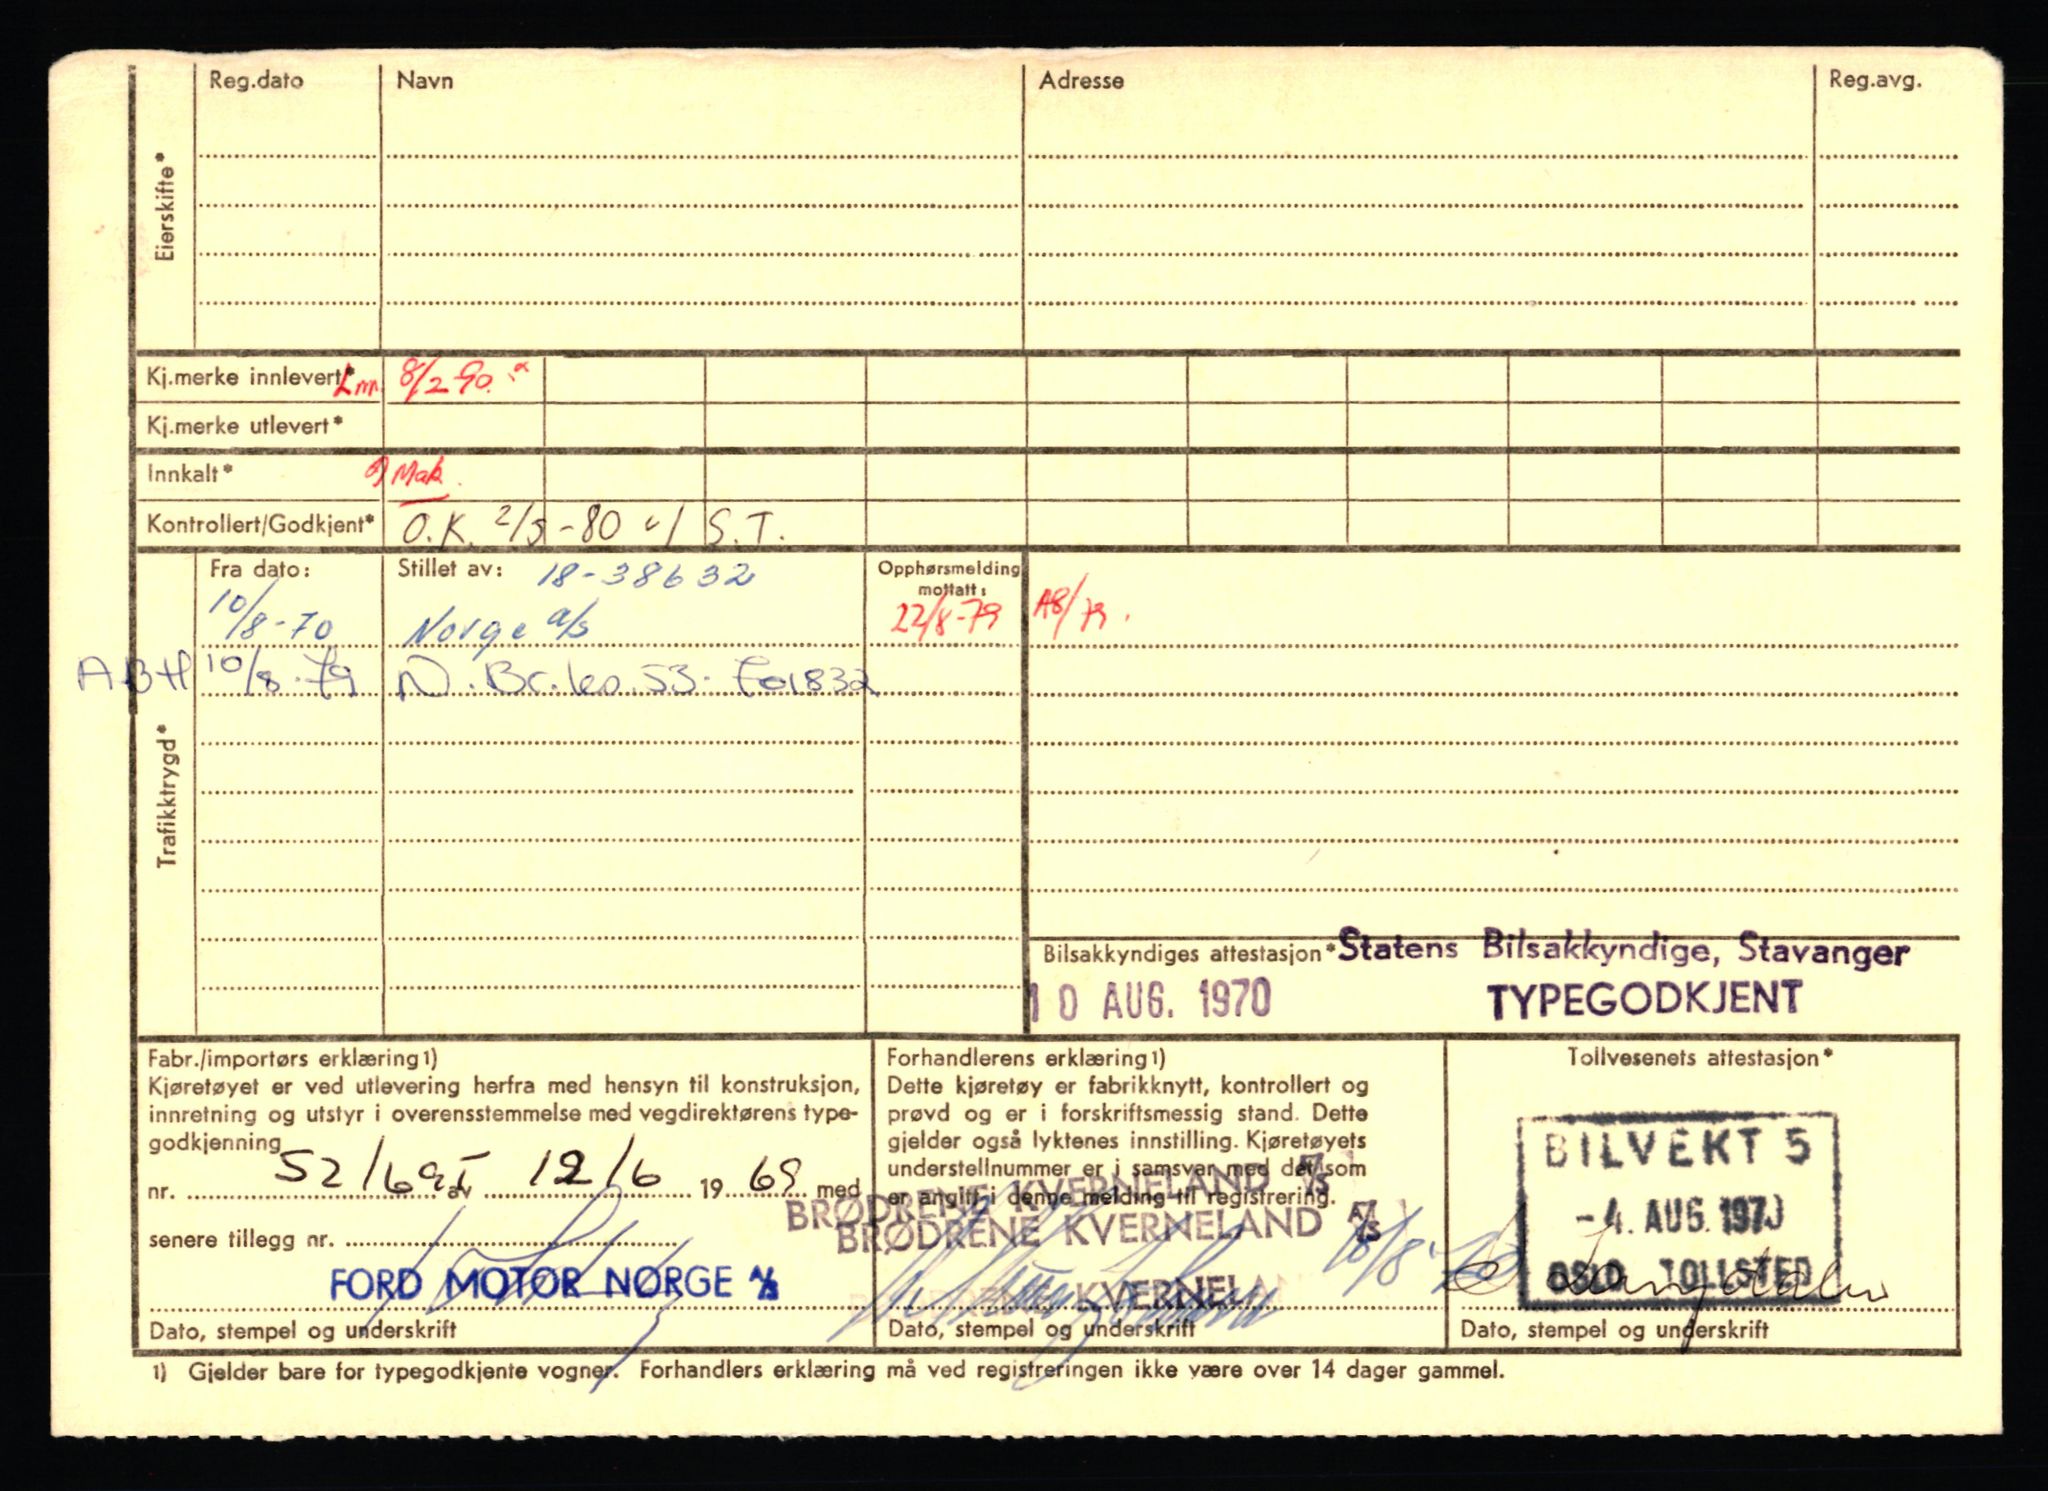 Reg.dato Navn Adresse Reg.avg.
Eierskifte*
Kj.merke innlevert* L nr. 8/2 90. a
Kj.merke utlevert*
Innkalt* a) Mak.
Kontrollert/Godkjent* O.K. 2/5-80 S.T.
Fra dato: Stillet av: 18-38632 Opphørsmelding mottatt:
10/8-70 Norge a/s 22/8-79 A8/79.
ABH 10/8-79 N.Br.ks.53.
Trafikktrygd*
Bilsakkyndiges attestasjon* Statens Bilsakkyndige, Stavanger
10 AUG. 1970 TYPEGODKJENT
Fabr./importørs erklæring1)
Kjøretøyet er ved utlevering herfra med hensyn til konstruksjon,
innretning og utstyr i overensstemmelse med vegdirektørens type-
godkjenning
nr. 52/69I av 12/6 1969 med
senere tillegg nr.
FORD MOTOR NORGE A/S
Dato, stempel og underskrift
Forhandlerens erklæring1)
Dette kjøretøy er fabrikknytt, kontrollert og
prøvd og er i forskriftsmessig stand. Dette
gjelder også lyktenes innstilling. Kjøretøyets
understellnummer er i samsvar med det som
er angitt i denne melding til registrering.
BRØDRENE KVERNELAND A/S
BRØDRENE KVERNELAND A/S
10/8-70
KVERNELAN
Dato, stempel og underskrift
Tollvesenets attestasjon*
BILVEKT 5
-4. AUG. 1970
OSLO TOLLSTED
Dato, stempel og underskrift
1) Gjelder bare for typegodkjente vogner. Forhandlers erklæring må ved registreringen ikke være over 14 dager gammel.